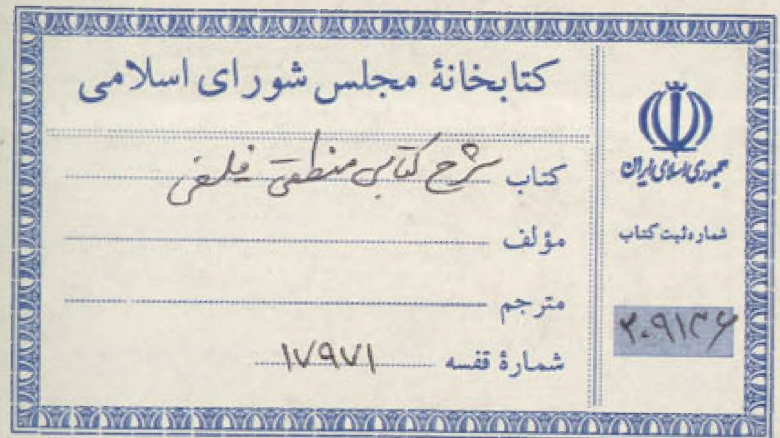 کتابخانهٔ مجلس شورای اسلامی
کتاب شرح کتابی منطقی فلسفی
مؤلف
مترجم
شمارهٔ قفسه ۱۷۹۷۱
جمهوری اسلامی ایران
شماره ثبت کتاب
۲۰۹۱۳۶